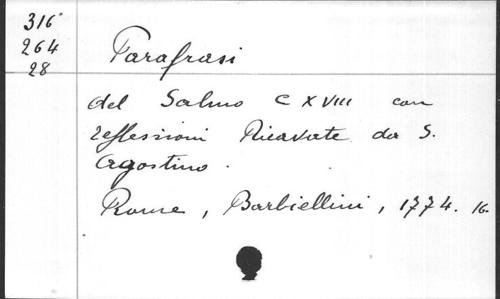 316
264
28
Parafrasi
del Salmo CXVIII con
reflessioni Ricavate da S.
Agostino.
Rome, Barbiellini, 1774. 16.